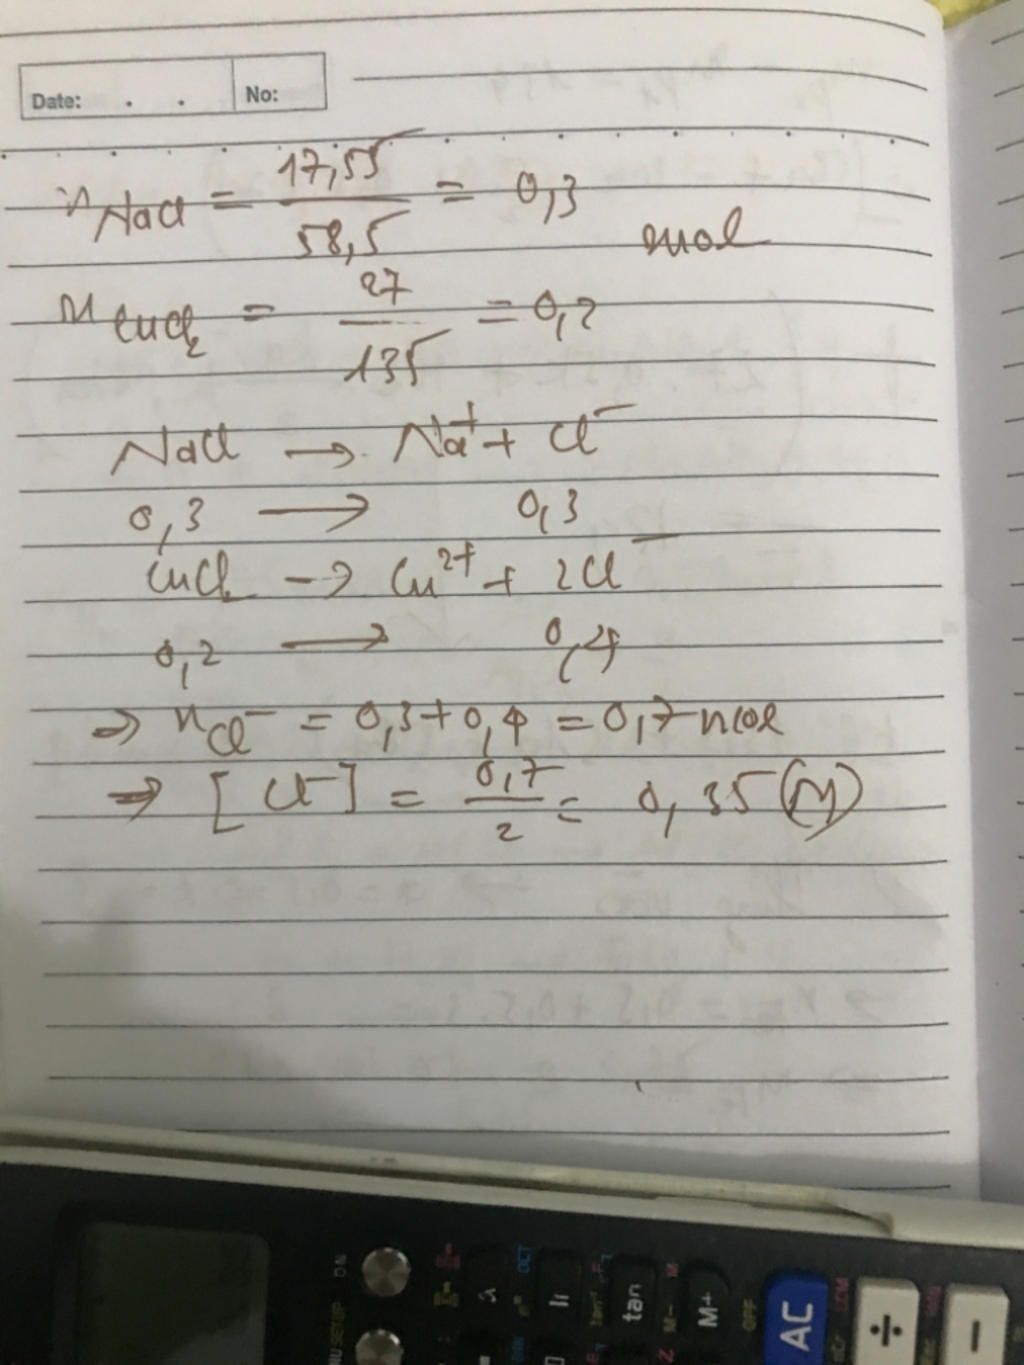 Date: . . No:
n NaCl = 17,55 / 58,5 = 0,3
mol
n CuCl2 = 27 / 135 = 0,2
NaCl → Na+ + Cl-
0,3 → 0,3
CuCl2 → Cu2+ + 2Cl-
0,2 → 0,4
⇒ nCl- = 0,3+0,4 = 0,7 mol
⇒ [Cl-] = 0,7 / 2 = 0,35 (M)
ON
OCT
tan
M+
M-
OFF
AC
÷
-